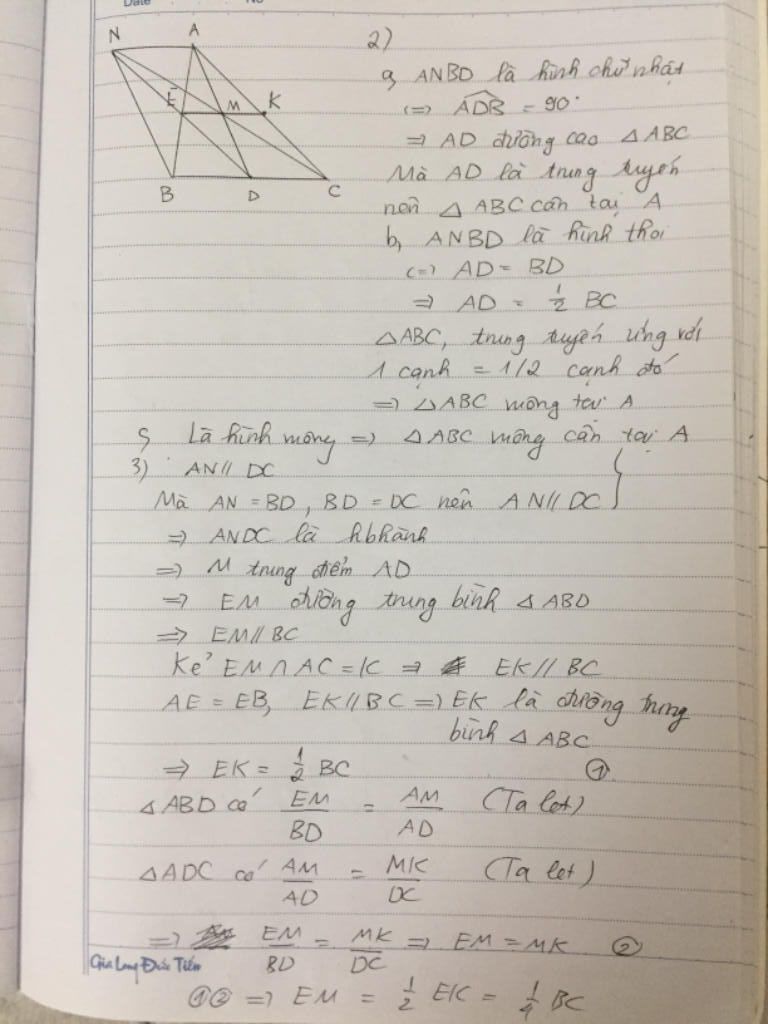 Date No
N A
E M K
B D C
2)
a, ANBD là hình chữ nhật
(=) ADB = 90°
=> AD đường cao △ ABC
Mà AD là trung tuyến
nên △ ABC cân tại A
b, ANBD là hình thoi
(=) AD = BD
=> AD = 1/2 BC
△ABC, trung tuyến ứng với
1 cạnh = 1/2 cạnh đó
=> △ABC vuông tại A
c, Là hình vuông => △ABC vuông cân tại A
3) AN // DC
Mà AN = BD, BD = DC nên AN // DC }
=> ANDC là hbhành
=> M trung điểm AD
=> EM đường trung bình △ ABD
=> EM // BC
Kẻ EM ∩ AC = K => EK // BC
AE = EB, EK // BC => EK là đường trung
bình △ ABC
=> EK = 1/2 BC ①
△ABD có EM/BD = AM/AD (Ta let)
△ADC có AM/AD = MK/DC (Ta let)
=> EM/BD = MK/DC => EM = MK ②
Gia Long Đức Tiến
①② => EM = 1/2 EK = 1/4 BC